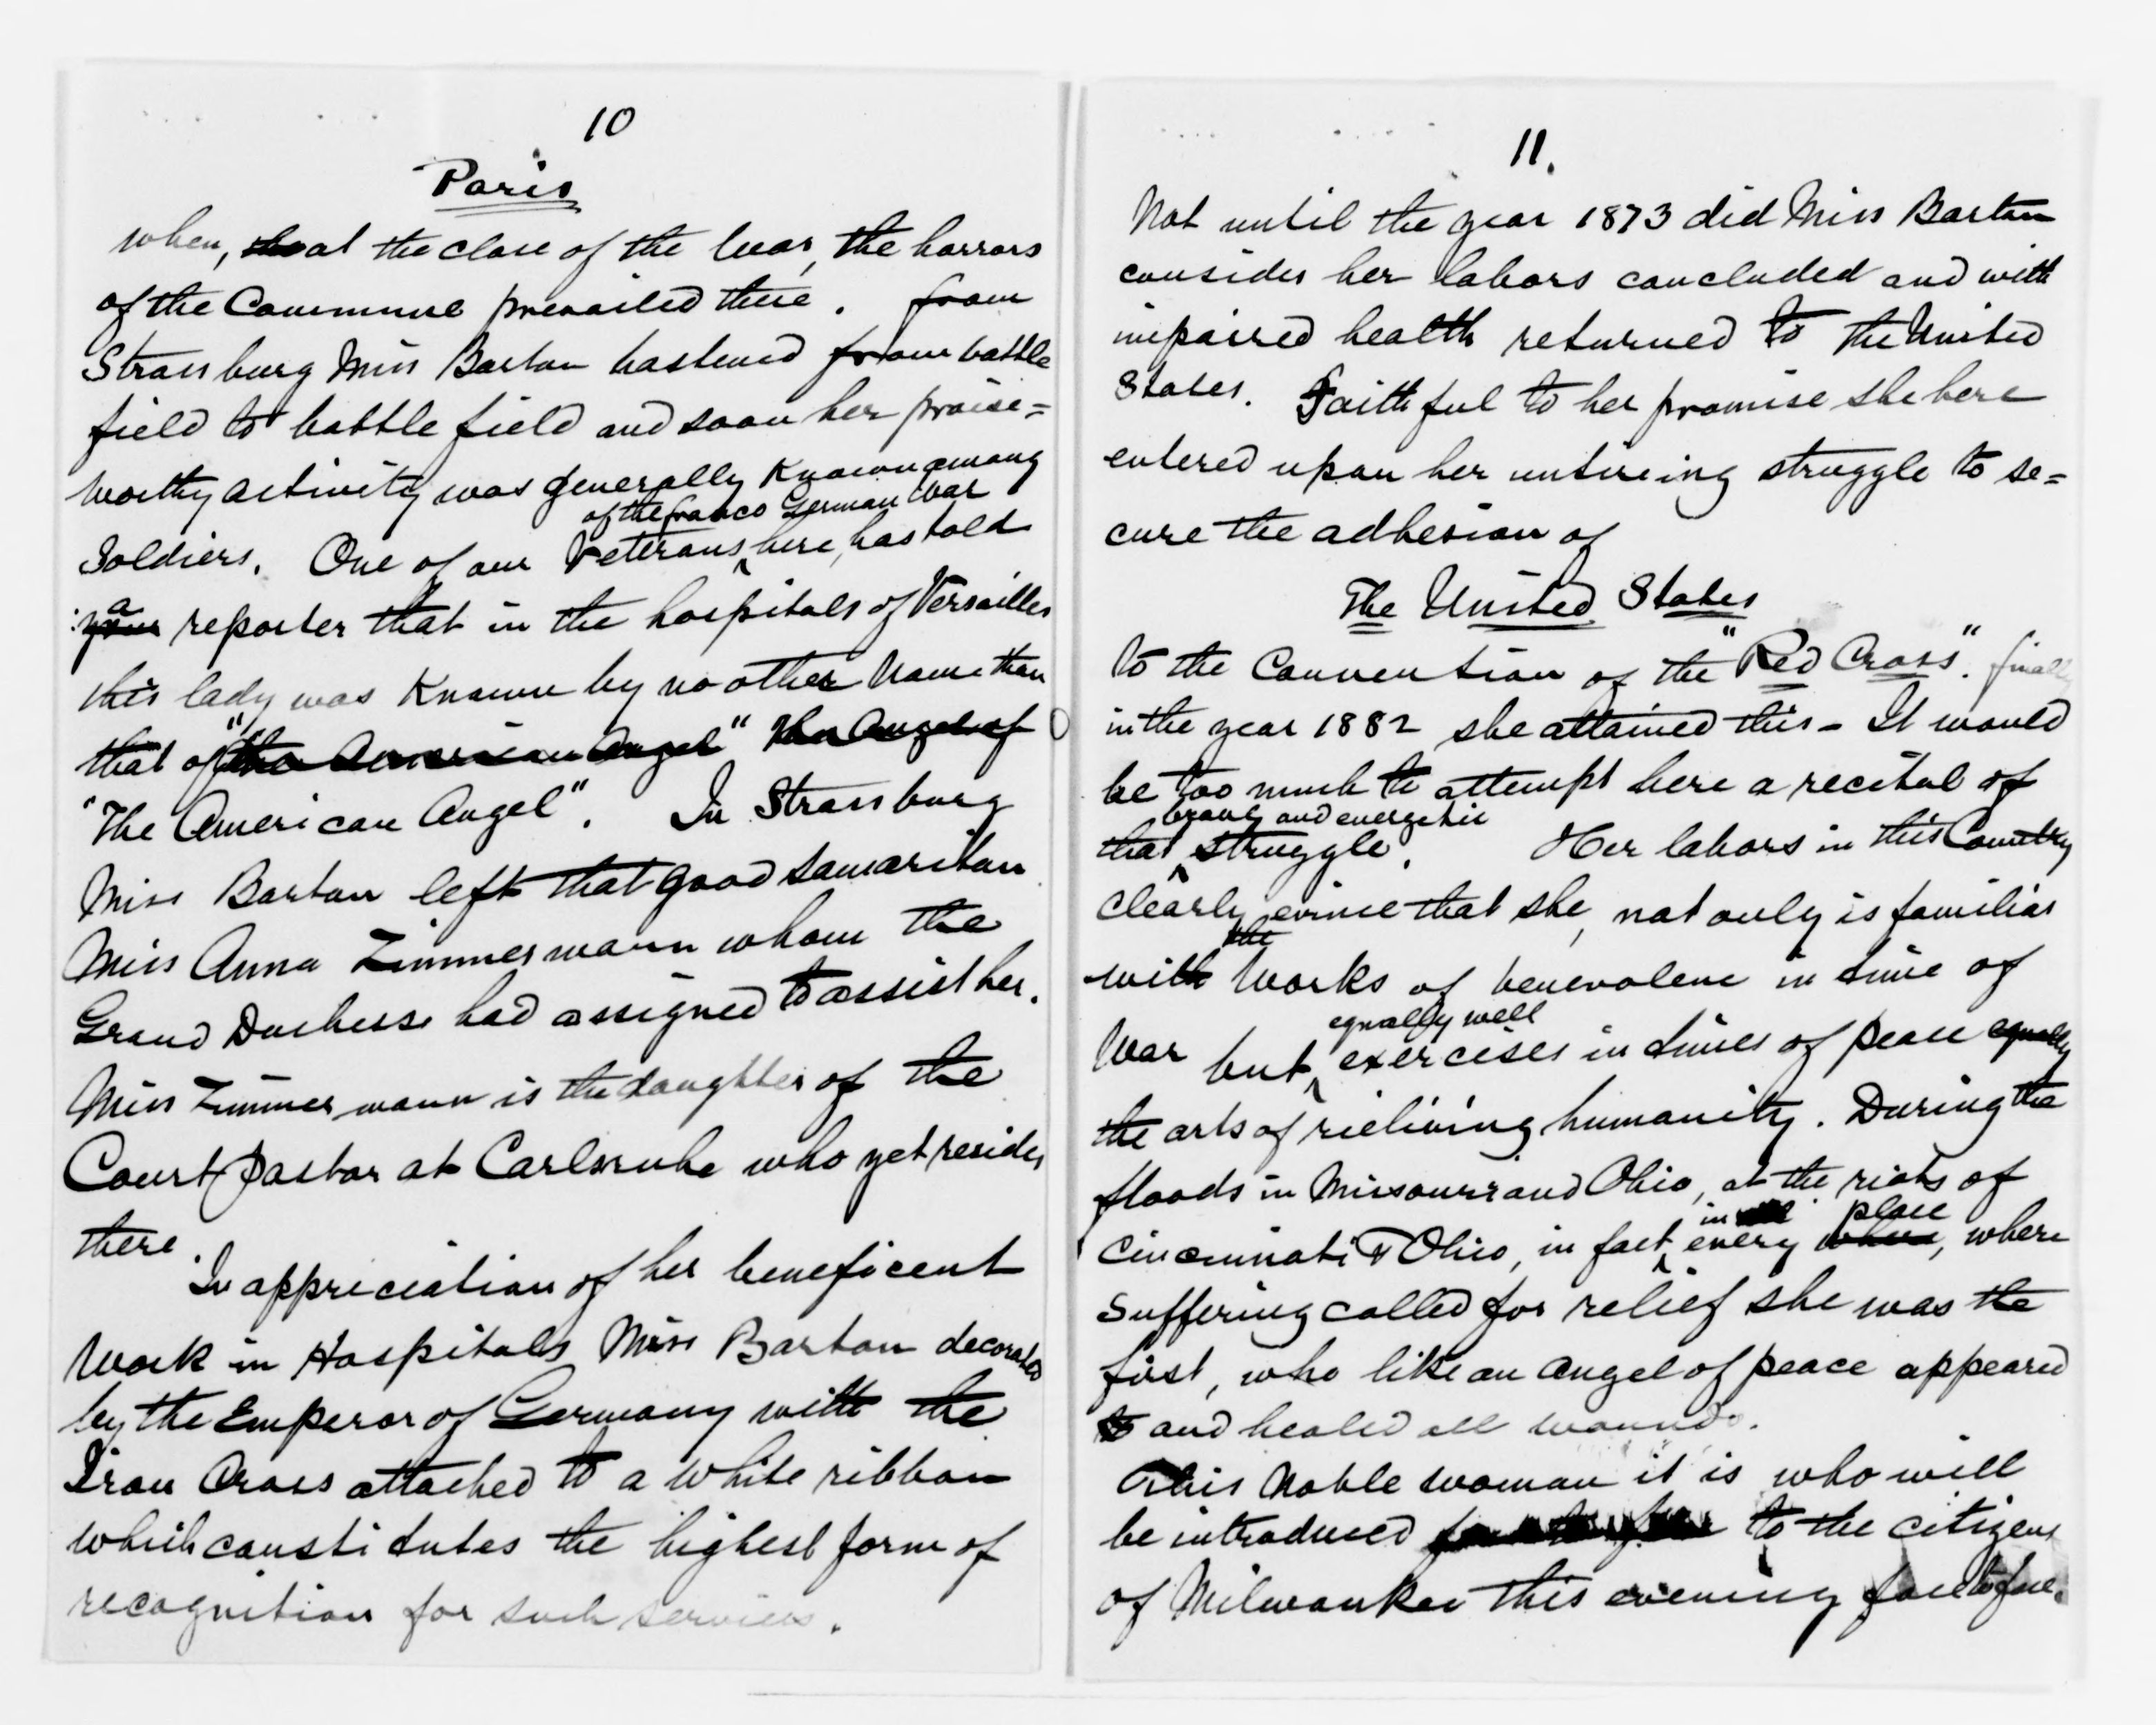 10
Paris
when, at the close of the War, the horrors
of the Commune prevailed there. from
Strassburg Miss Barton hastened from battle
field to battle field and soon her praise=
worthy activity was generally Known among
of the franco German War
Soldiers. One of our Veterans, here, has told
a
your reporter that in the hospitals of Versailles
this lady was Known by no other Name than
that of "the American Angel" The Angel of
"The American Angel". In Strassburg
Miss Barton left that good Samaritan
Miss Anna Zimmermann whom the
Grand Duchesse had assigned to assist her.
Miss Zimmermann is the daughter of the
Court Pastor at Carlsruhe who yet resides
there.
In appreciation of her beneficent
Work in Hospitals Miss Barton decorated
by the Emperor of Germany with the
Iron Cross attached to a White ribbon
which constitutes the highest form of
recognition for such services.
11.
Not until the year 1873 did Miss Barton
consider her labors concluded and with
impaired health returned to the United
States. Faithful to her promise she here
entered upon her untireing struggle to se=
cure the adhesion of
The United States
to the Convention of the "Red Cross". finally
in the year 1882 she attained this - It would
be too much to attempt here a recital of
brave and energetic
that struggle. Her labors in this Country
Clearly evince that she, not only is familiar
the
with Works of benevolence in time of
equally well
War but exercises in times of peace equally
the arts of rieliving humanity. During the
floods in Missouri and Ohio, at the riots of
in place
Cincinnati Ohio, in fact every where, where
Suffering called for relief she was the
first, who like an Angel of peace appeared
to and healed all wounds.
This Noble Woman it is who will
be introduced to the citizens
of Milwaukee this evening face to face.